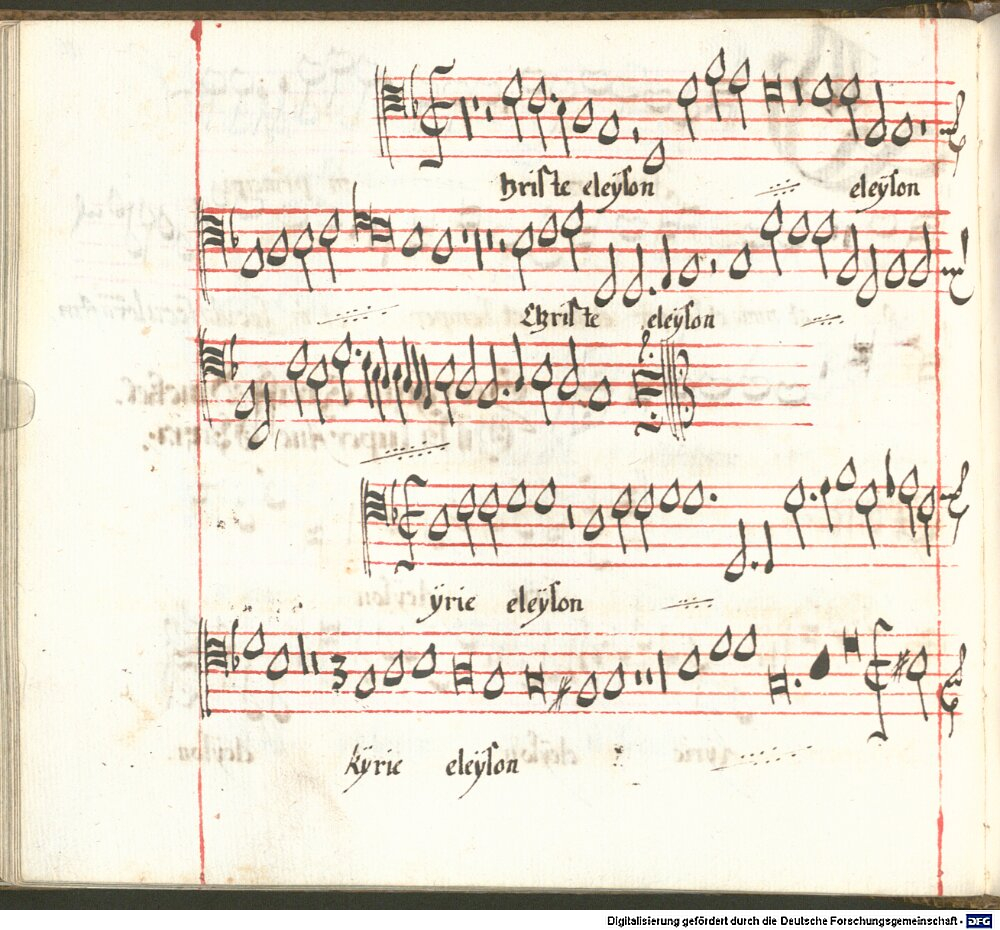 hriste eleÿson eleÿson
Christe eleÿson
ÿrie eleÿson
3
Kÿrie eleÿson
Digitalisierung gefördert durch die Deutsche Forschungsgemeinschaft - DFG